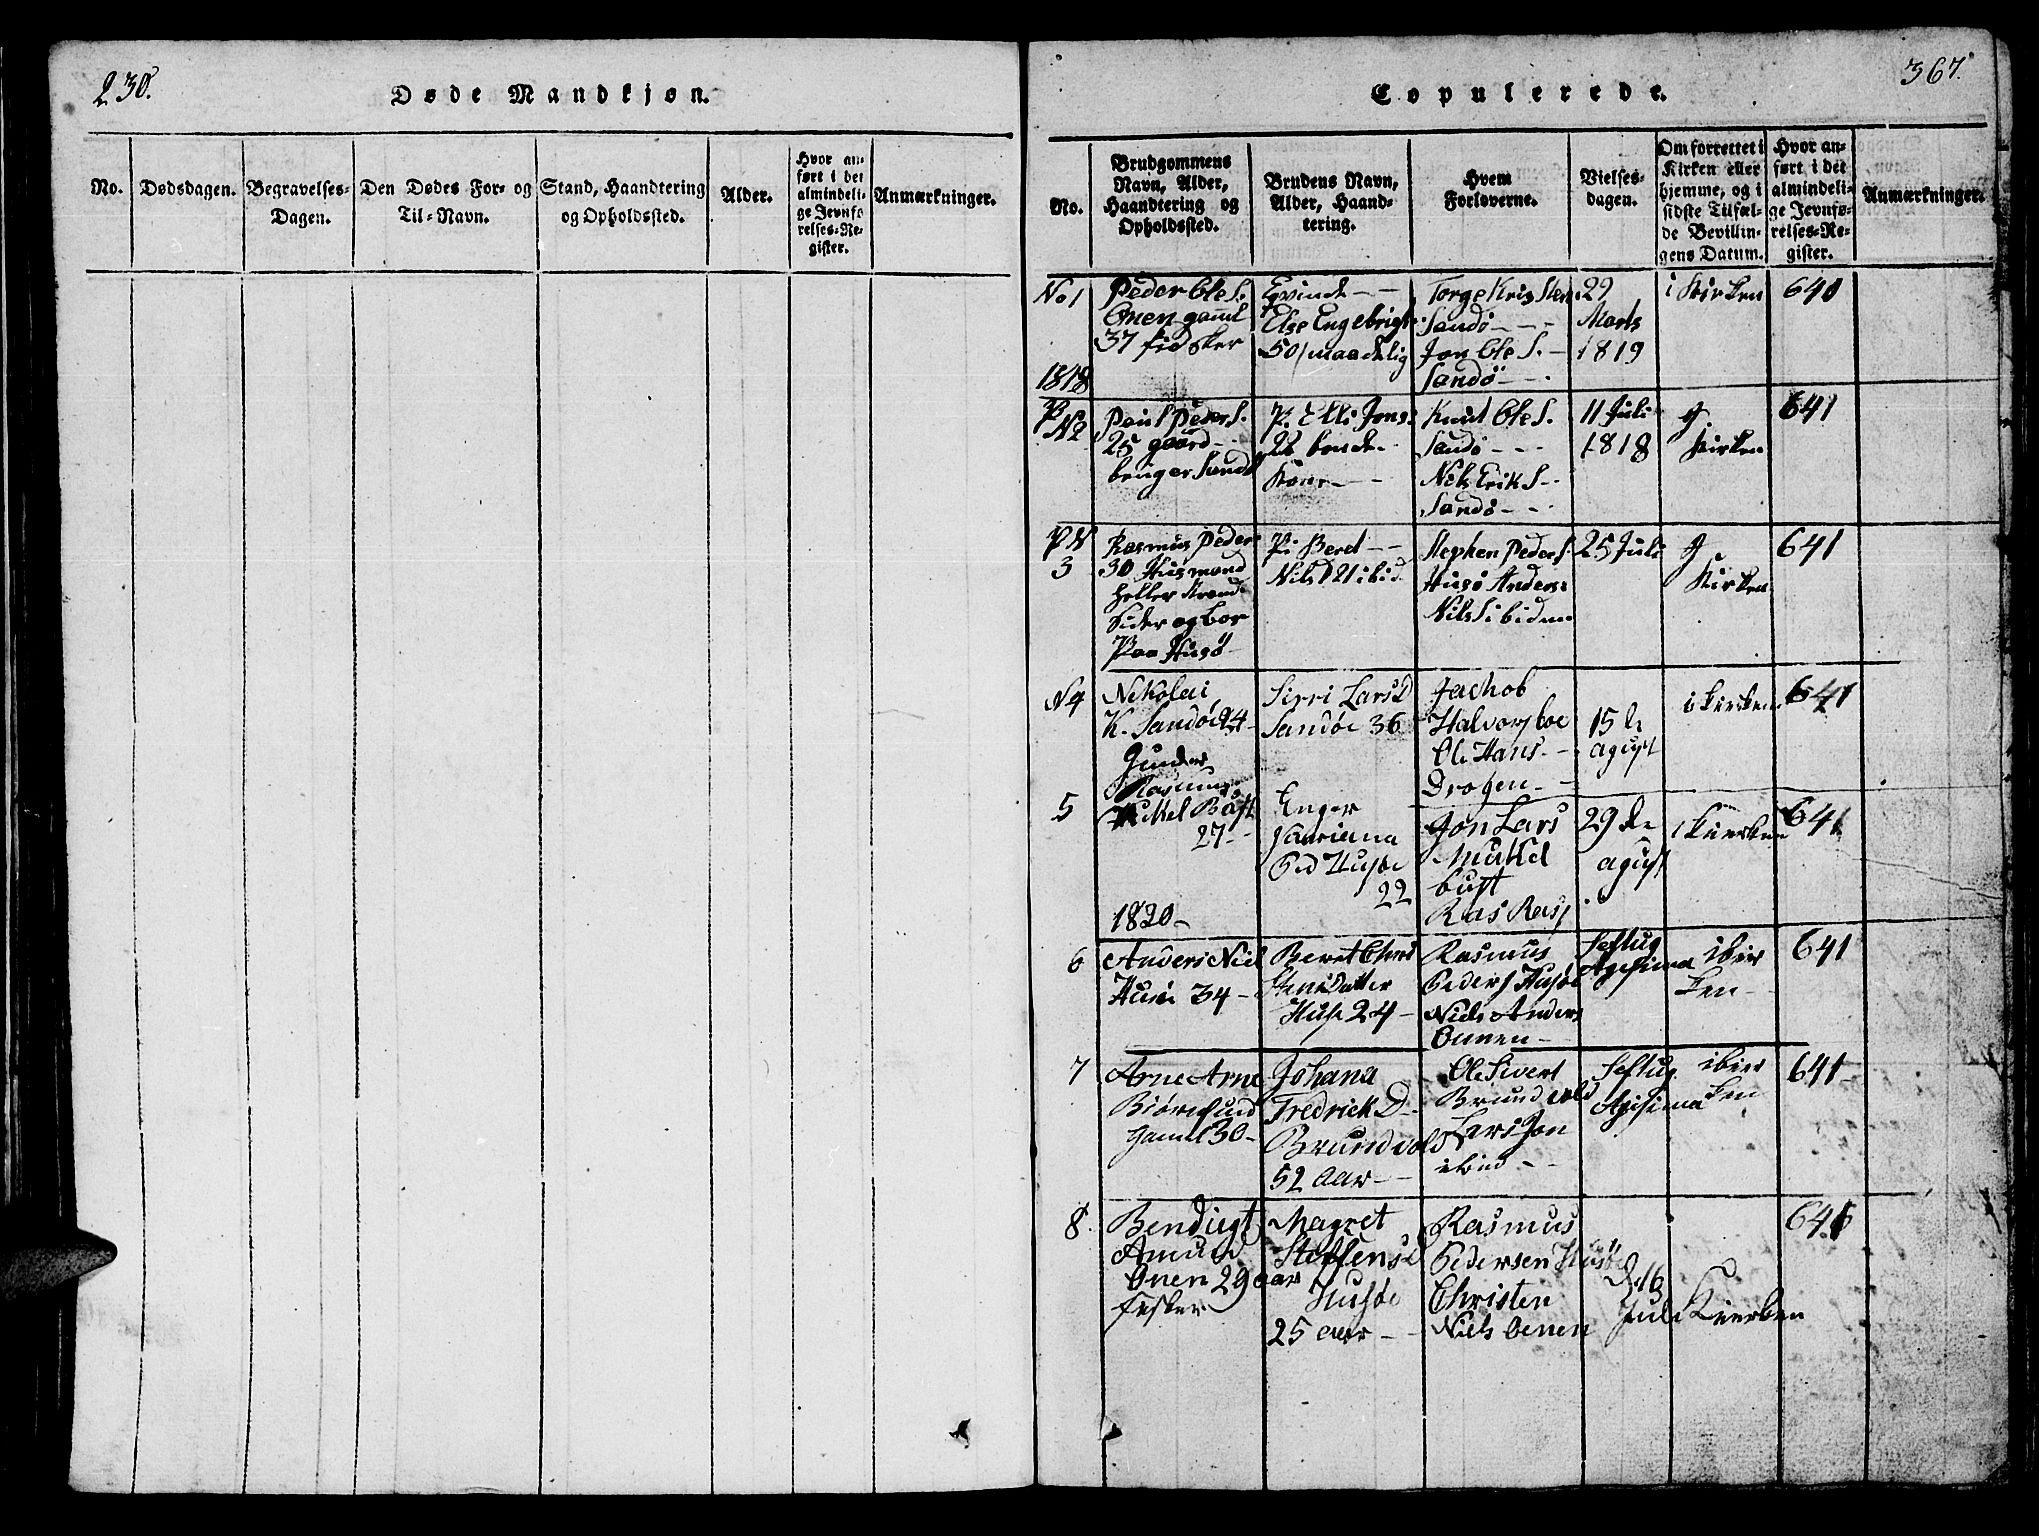 230.
Døde Mandkjøn.
No.
Dødsdagen.
Begravelses-
Dagen.
Den Dødes For- og
Til-Navn.
Stand, Haandtering
og Opholdssted.
Alder.
Hvor an-
ført i det
almindeli-
ge Jevnfø
relses-Re-
gister.
Anmærkninger.
367.
Copulerede.
No.
Brudgommens
Navn, Alder,
Haandtering og
Opholdssted.
Brudens Navn,
Alder, Haand-
tering.
Hvem
Forloverne.
Vielses-
dagen.
Om forrettet i
Kirken eller
hjemme, og i
sidste Tilfæl-
de Bevillin-
gens Datum.
Hvor an-
ført i det
almindeli-
ge Jevnfø-
relses-Re-
gister.
Anmærkninger.
No 1
1818
Peder Ole S.
Onen gaml
37 fidsker
Qvinde - -
Else Engebrigt
50
Torge Kristen
Sandö - - -
Jon Ole S. -
Sandö - - .
29
Marts
1819
i Kirken
640
P
N2
Paul Peder S.
25 gaard-
bruger Sandö
P. Elli Jons
22 bonde-
Kone - -
Knud Ole S.
Sandö - - -
Nils Erik S - -
Sandö - - .
11 Juli
1818
J
Kirken
641
P N
3
Rasmus Peders
30 Husmand
heller Strand-
Sider og bor
Paa Husö
P. Beret - -
Nils D 21 ibid
Stephen Peder S.
Husö Anders
Nils S ibidem
25 Juli
J
Kirken
641
N 4
Nikolai
K. Sandöe 24 -
Sirri Lars D
Sandöe 36
Jachob
Halvors boe
Ole Hans - -
Drogen - -
15 de
agust
i kierken
641
5
Gunder
Rasmus
Mikkel Bust
27 -
1820 -
Enger
Mariana
Ped Husöe
22
Jon Lars
Mikkel
bust
Ras Ras
29 de
agust
i kierken
641
6
Anders Niel
Husöe 34 -
Beret Chri
stensdatter
Huse 24 -
Rasmus
Peders Husöe
Niels Anders
Ounen -
Seftug
Agesima
i kier
ken -
641
7
Arne Arne
Biörnsund
gaml 30 -
Johana
Fredrick D -
Brundvold
52 Aar - -
Ole Sivert
Brundvold
Lars Jon
ibid - -
Seftug
Agesima
i kier
ken
641
8.
Bendigt
Amund
Onen 29 aar
fesker
Magret
Steffens D
Husöe
25 aar - -
Rasmus
Pedersen Husö
Christen
Niels Oenen
D. 16
Juli
Kierken
641